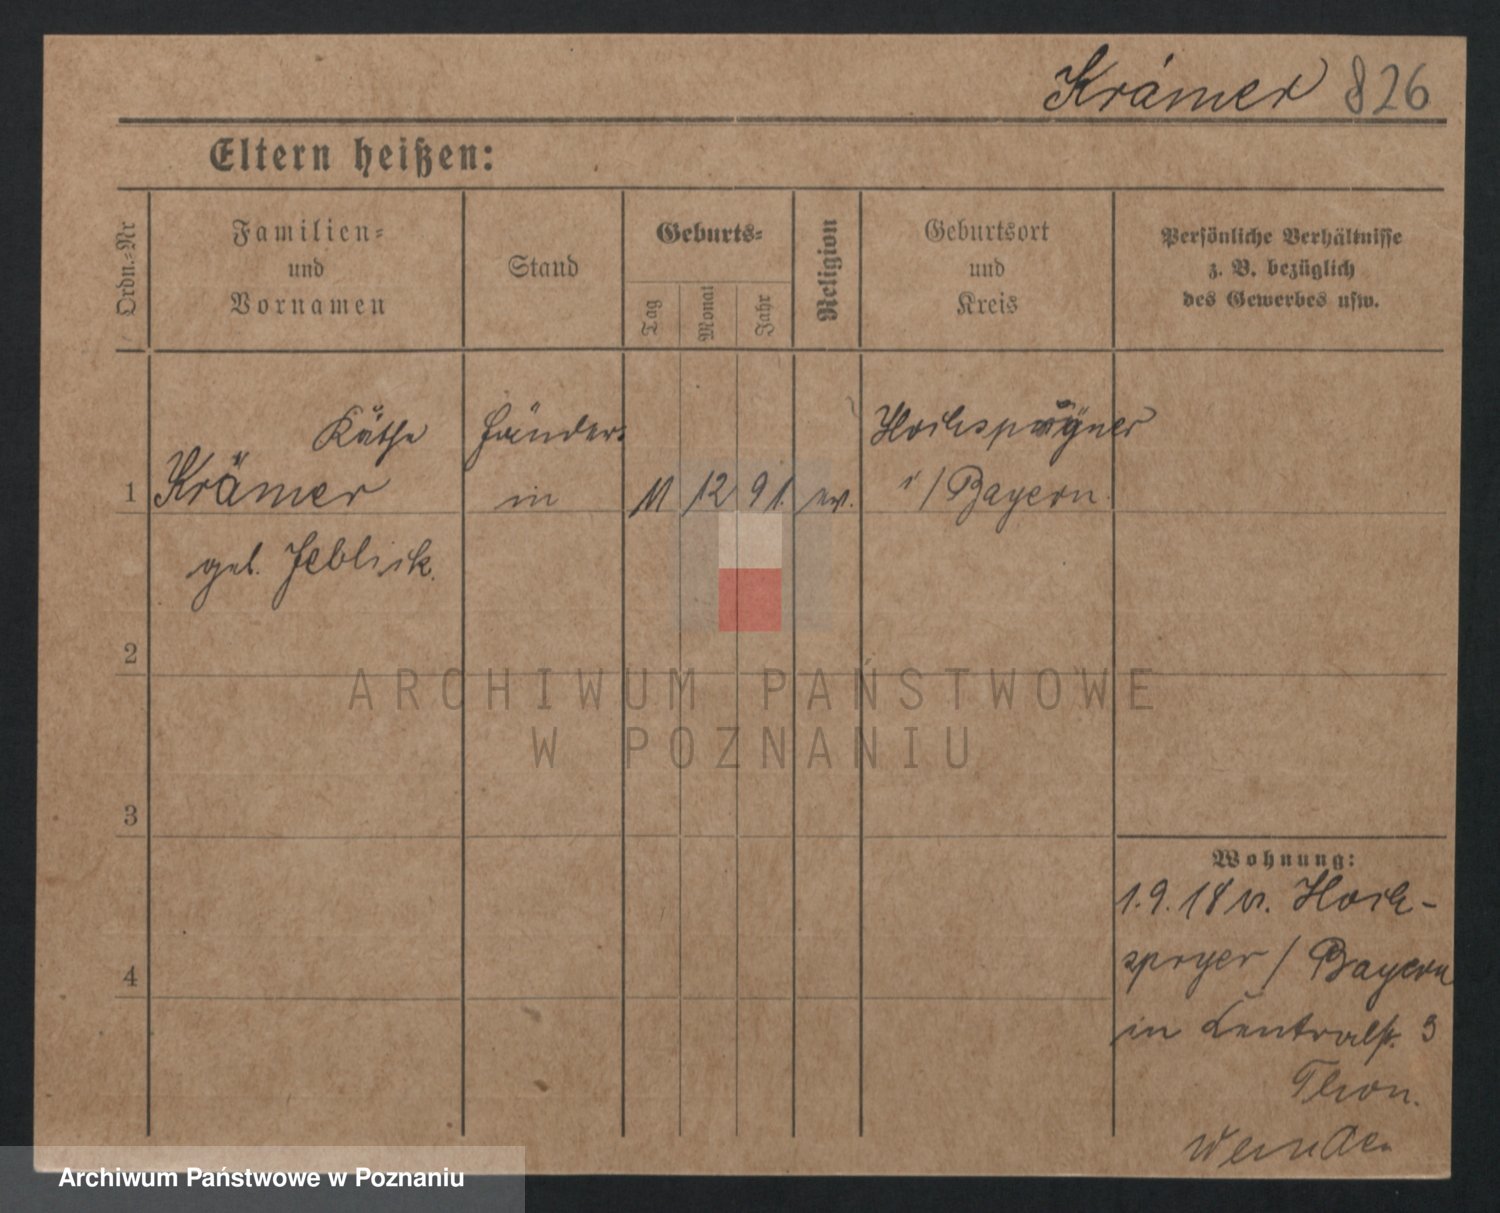 Krämer 826
Eltern heißen:
Ordn.-Nr
Familien-
und
Vornamen
Stand
Geburts-
Tag
Monat
Jahr
Religion
Geburtsort
und
Kreis
Persönliche Verhältnisse
z. B. bezüglich
des Gewerbes usw.
Käthe
Krämer
geb. Jeblick.
Händler-
in
11 12 91. ev.
i/Bayern.
1
2
3
4
Wohnung:
1.9.18 v. Hoch-
speyer / Bayern
in Centralh. 3
Thon.
wenden
ARCHIWUM PAŃSTWOWE
W POZNANIU
Archiwum Państwowe w Poznaniu